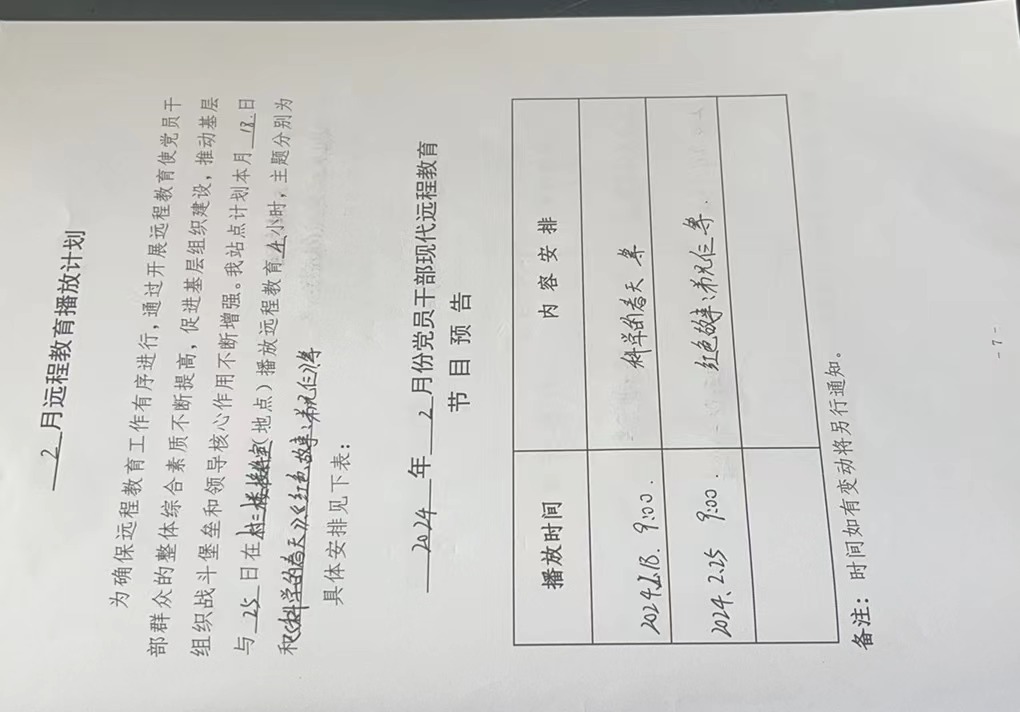 2 月远程教育播放计划
为确保远程教育工作有序进行，通过开展远程教育使党员干
部群众的整体综合素质不断提高，促进基层组织建设，推动基层
组织战斗堡垒和领导核心作用不断增强。我站点计划本月 18 日
与 25 日在村二楼接待室（地点）播放远程教育 4 小时，主题分别为
和《科学的春天》《红色故事：弟兄仨》等
具体安排见下表：
2024 年 2 月份党员干部现代远程教育
节目预告
播放时间 内容安排
2024.2.18. 9:00. 科学的春天 等
2024.2.25 9:00. 红色故事：弟兄仨 等.
备注：时间如有变动将另行通知。
- 7 -